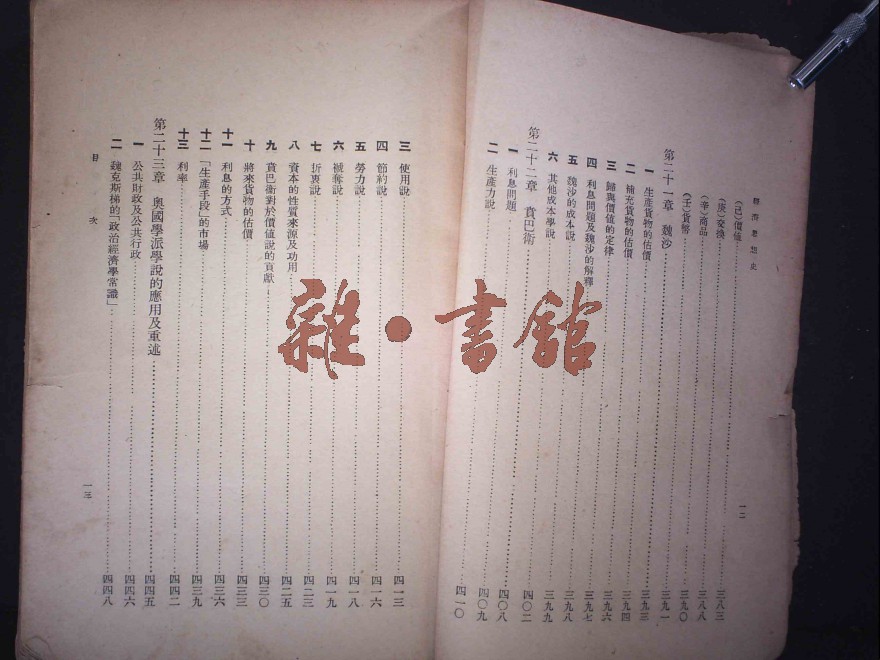 經濟思想史
(己)價値……三八三
(庚)交換……三八八
(辛)商品……三九〇
(壬)貨幣……三九一
第二十一章 魏沙……三九三
一 生產貨物的估價……三九四
二 補充貨物的估價……三九六
三 歸與價値的定律……三九七
四 利息問題及魏沙的解釋……三九八
五 魏沙的成本說……三九九
六 其他成本學說……四〇二
第二十二章 賁巴衛……四〇八
一 利息問題……四〇九
二 生產力說……四一〇
一二
三 使用說……四一三
四 節約說……四一六
五 勞力說……四一八
六 襯奪說……四一九
七 折衷說……四二三
八 資本的性質來源及功用……四二五
九 賁巴衛對於價値說的貢獻……四三〇
十 將來貨物的估價……四三三
十一 利息的方式……四三六
十二 「生產手段」的市場……四三九
十三 利率……四四二
第二十三章 奧國學派學說的應用及重述……四四五
一 公共財政及公共行政……四四六
二 魏克斯梯的「政治經濟學常識」……四四八
目次
一三
雜·書舘